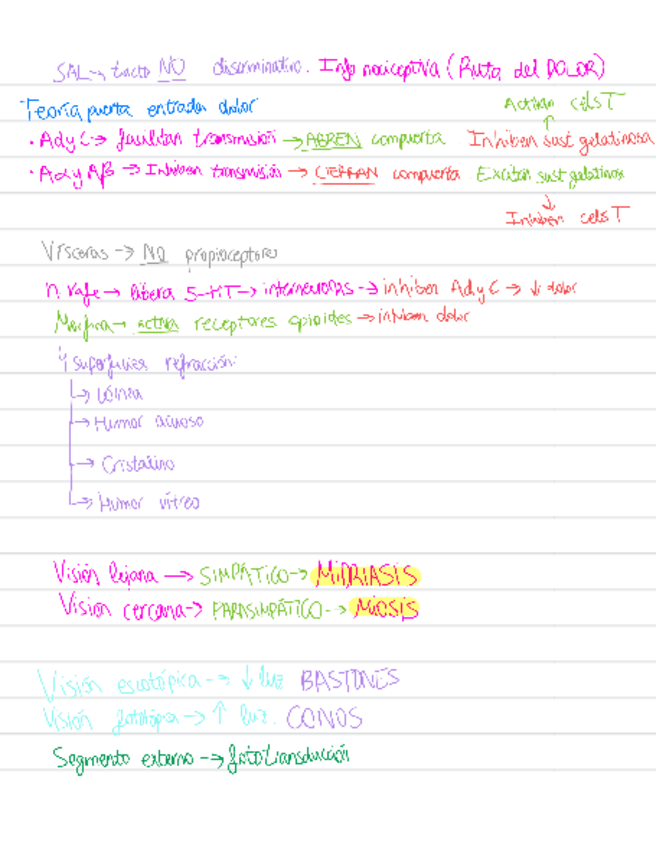 SAL → tacto NO discriminativo. Info nociceptiva (Ruta del DOLOR)
Teoría puerta entrada dolor
Activan céls T
↑
• Aδ y C → facilitan transmisión → ABREN compuerta Inhiben sust gelatinosa
• Aα y Aβ → Inhiben transmisión → CIERRAN compuerta Excitan sust gelatinosa
↓
Inhiben céls T
Vísceras → NO propioceptores
n. rafe → libera 5-HT → interneuronas → inhiben Aδ y C → ↓ dolor
Morfina → activa receptores opioides → inhiben dolor
4 superficies refracción:
→ Córnea
→ Humor acuoso
→ Cristalino
→ Humor vítreo
Visión lejana → SIMPÁTICO → MIDRIASIS
Visión cercana → PARASIMPÁTICO → MIOSIS
Visión escotópica → ↓ luz BASTONES
Visión fototópica → ↑ luz. CONOS
Segmento externo → fototransducción